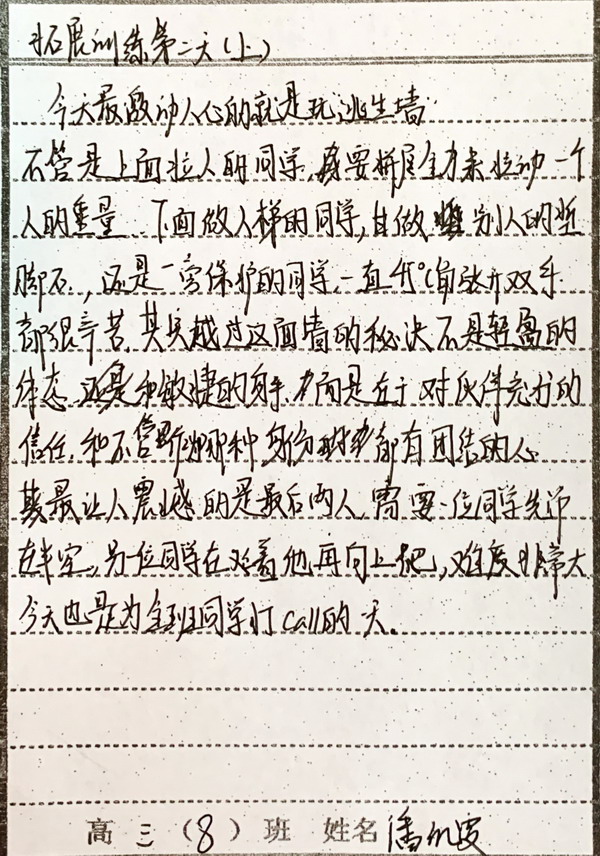 拓展训练第二天(上)
今天最激动人心的就是玩逃生墙
不管是上面拉人的同学,要拼尽全力来拉动一个
人的重量 下面做人梯的同学,甘做别人的垫
脚石,还是一旁保护的同学一直45℃角张开双手
都很辛苦 其实越过这面墙的秘诀不是轻盈的
体态 还是和敏捷的身手 而是在于对伙伴充分的
信任,和不管哪种身份都有团结的心
最让人震撼的是最后两人 需要一位同学先吊
在半空,另一位同学在踩着他再向上爬,难度非常大
今天也是为全班同学打call的一天。
高三(8)班 姓名 潘